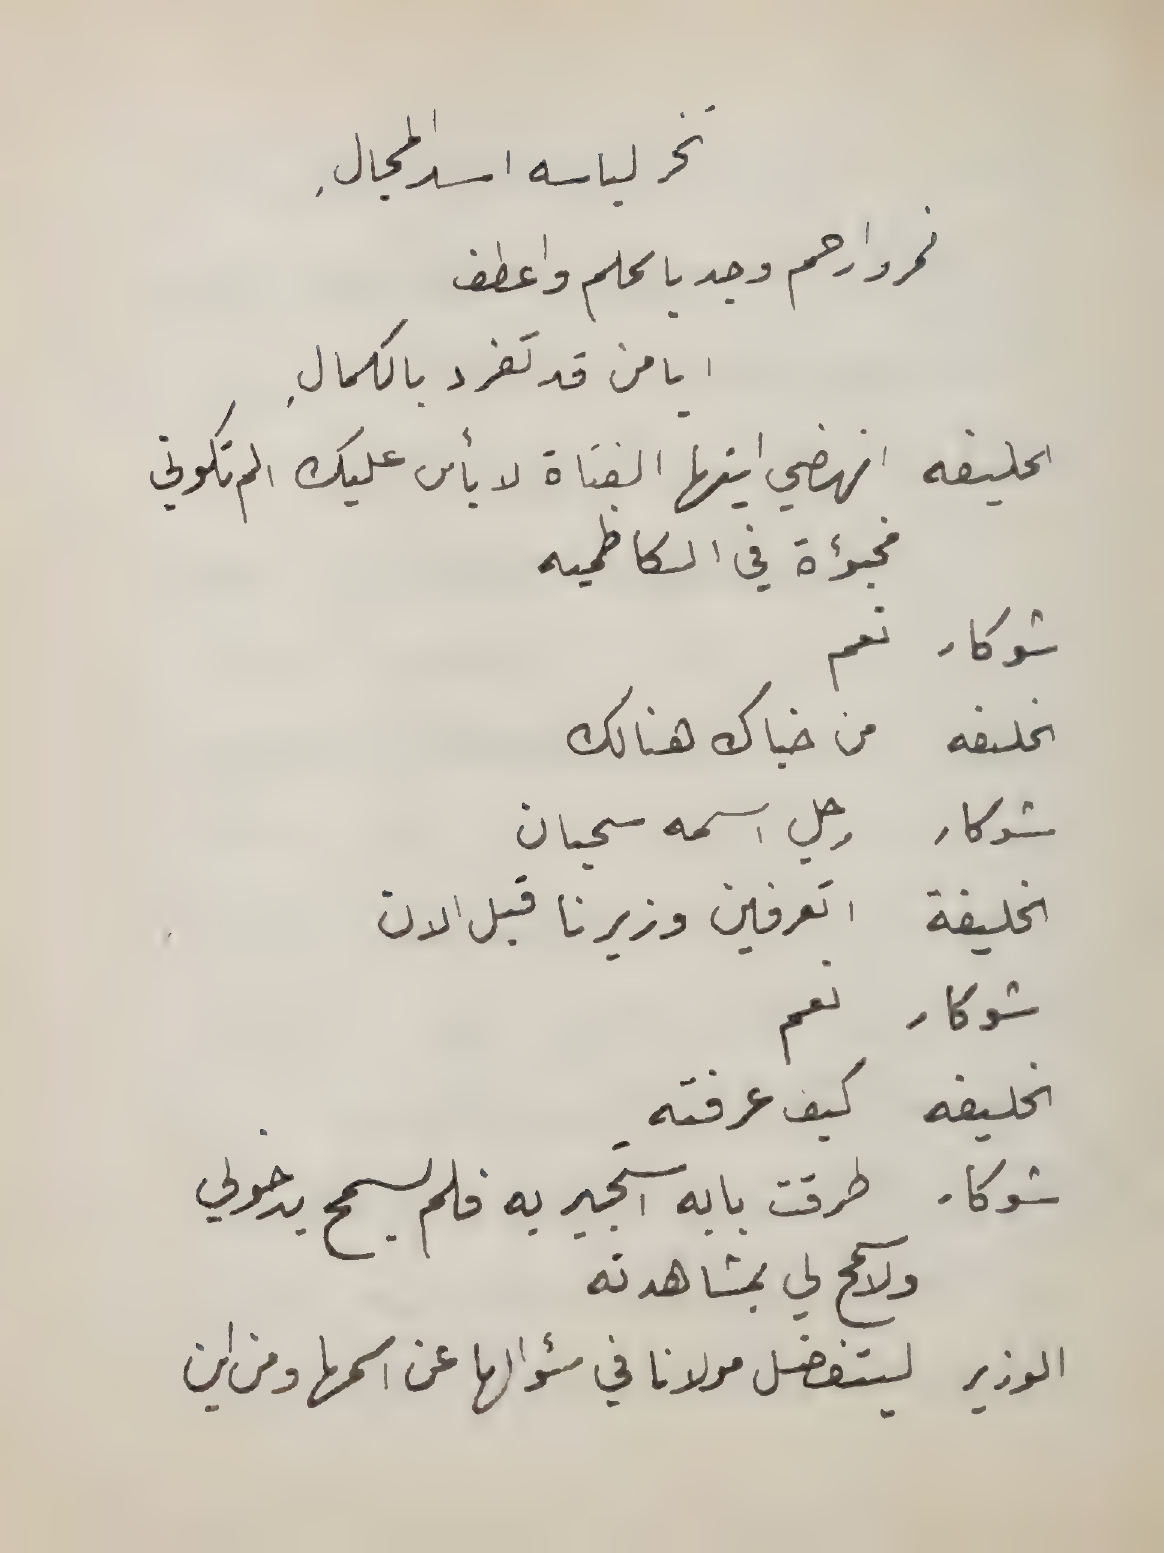 تخر لباسه اسد المجال
فمروارحم وجد بالحلم واعطف
ايا من قد تفرد بالكمال
الخليفه انهضي ايتها الفتاة لا بأس عليك الم تكوني
مخبؤة في الكاظميه
شوكار نعم
الخليفه من خباك هنالك
شوكار رجل اسمه سحبان
الخليفة اتعرفين وزيرنا قبل الان
شوكار نعم
الخليفه كيف عرفته
شوكار طرقت بابه استجير به فلم يسمح بدخولي
ولا سمح لي بمشاهدته
الوزير ليتفضل مولانا في سئوالها عن اسمها ومن اين